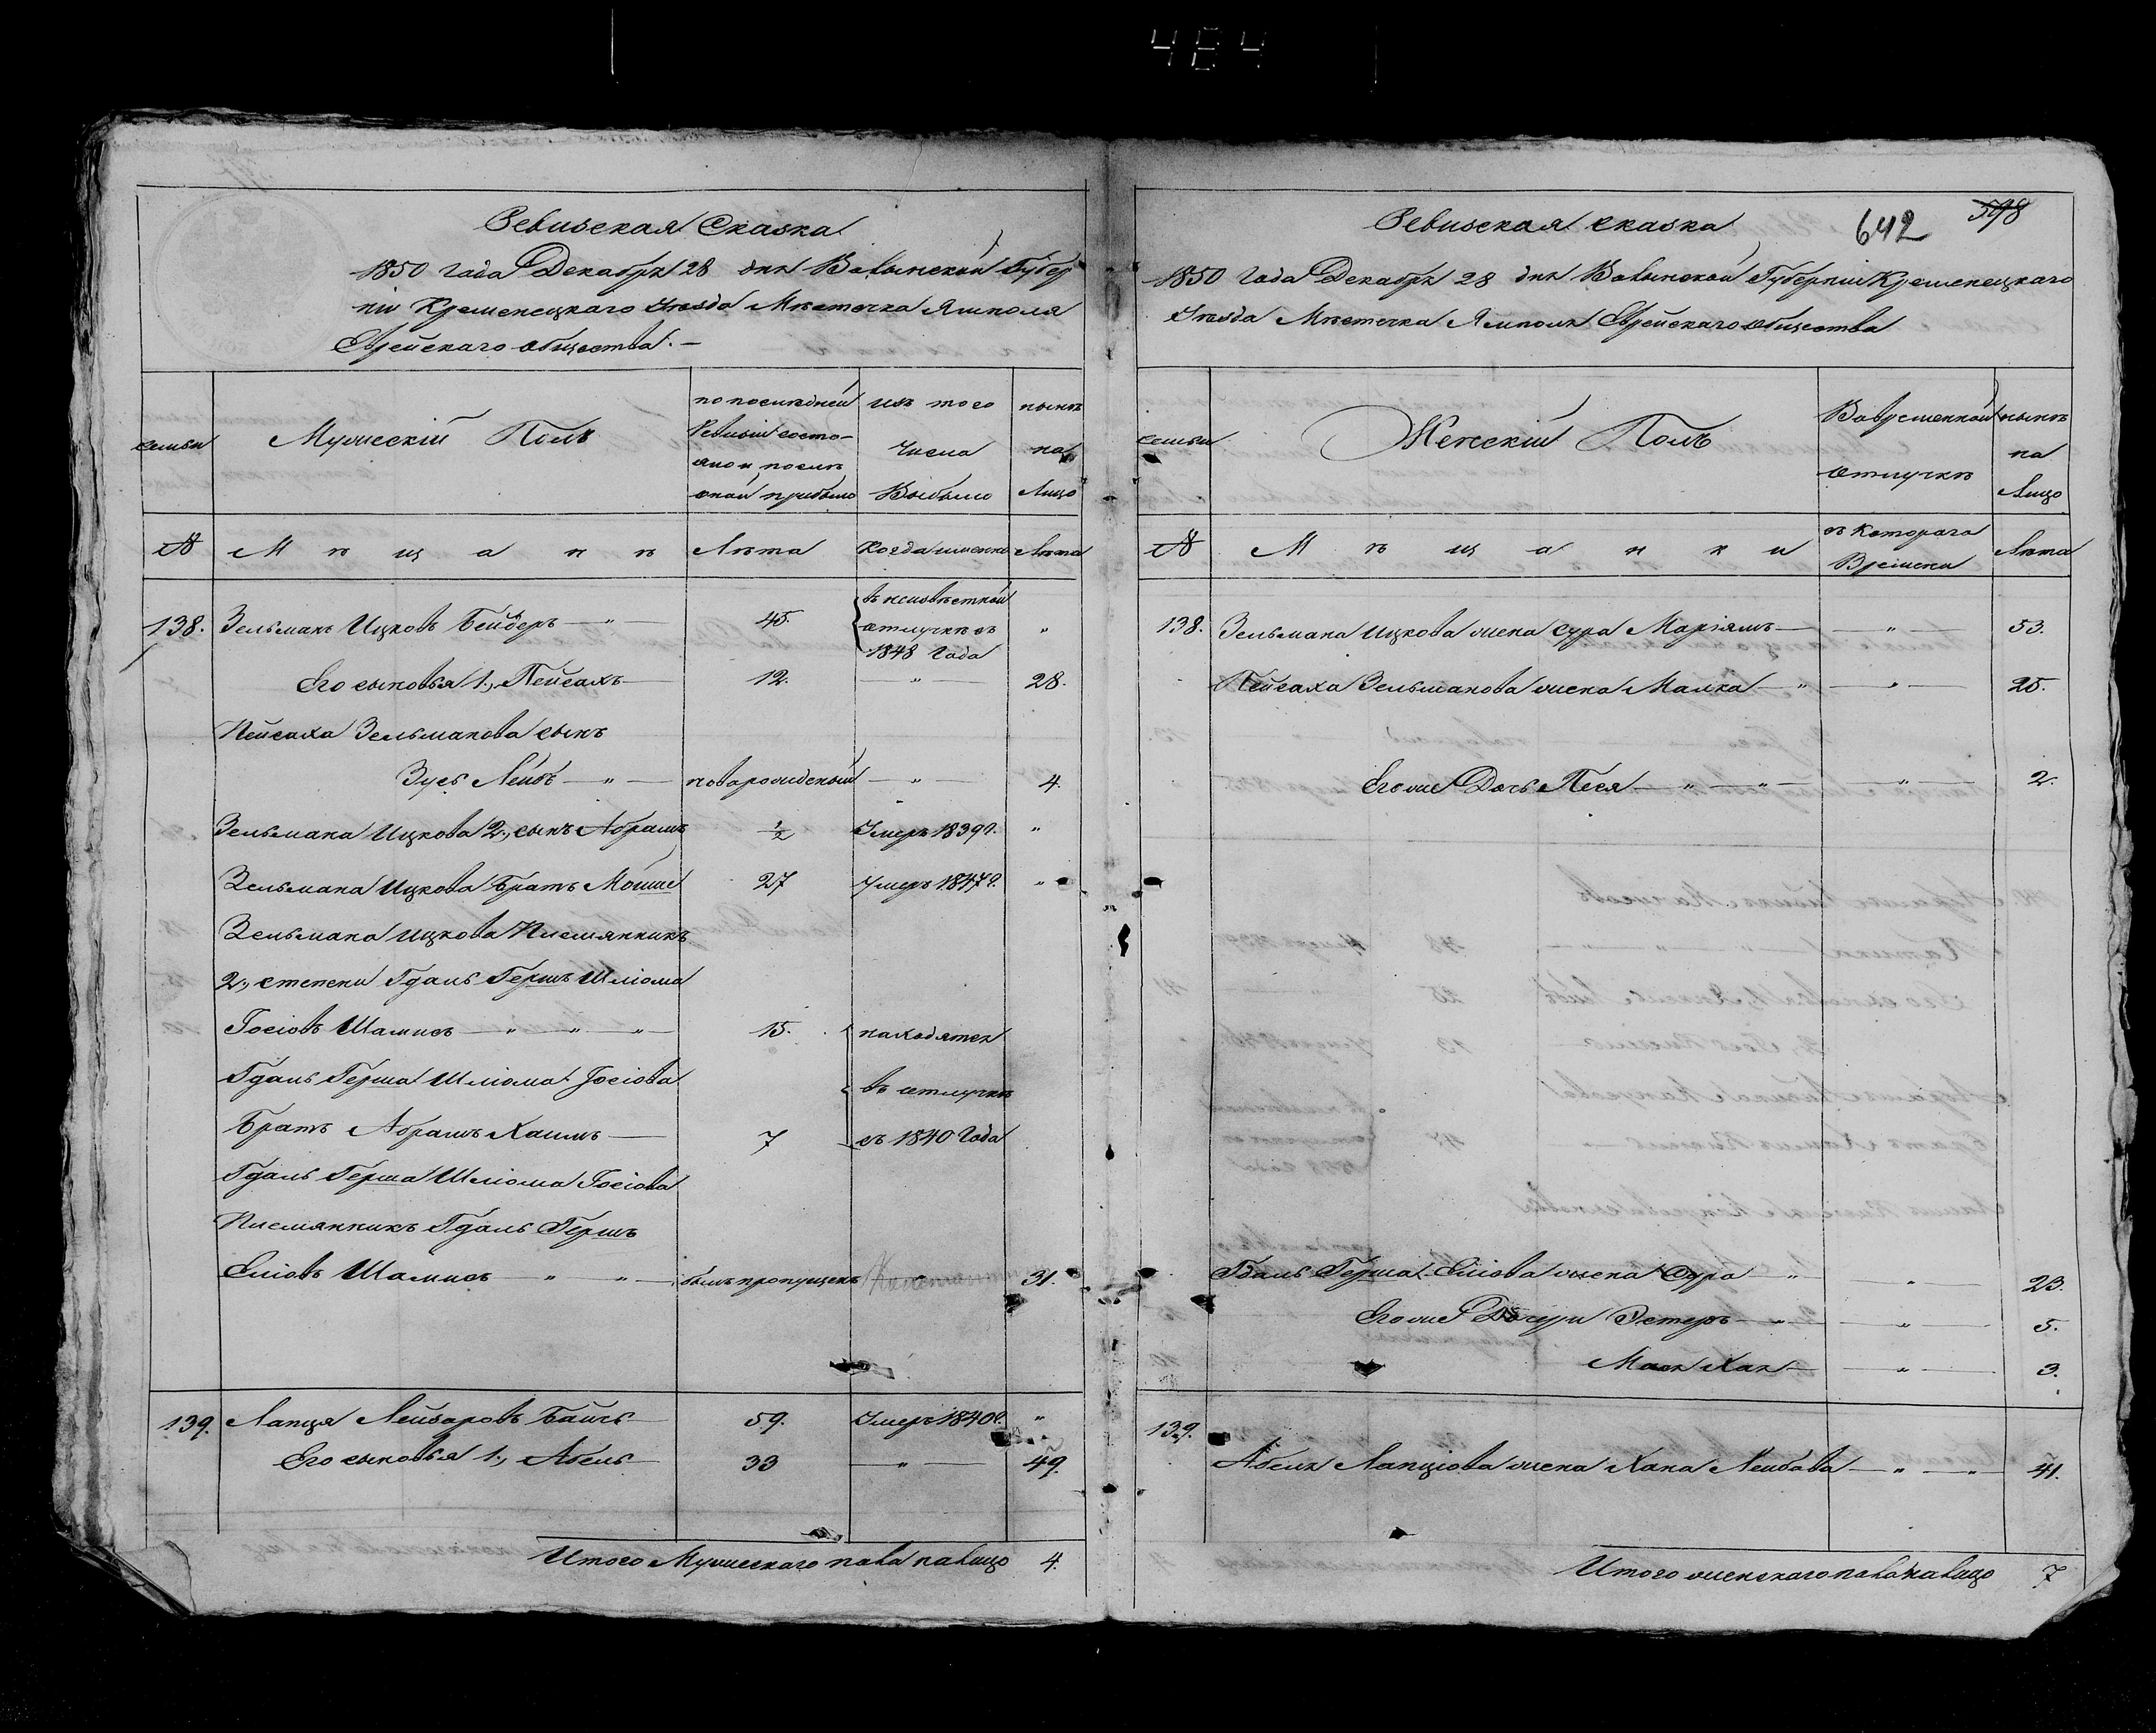 464
Ревизская Сказка
1850 года Декабря 28 дня Волынской Губер
ніи Кременецкаго Уезда Местечка Ямполя
Еврейскаго общества. —
семьи
Мужескій Полъ
по последней
Ревизіи состо-
яло и после
оной прибыло
изъ того
Числа
Выбыло
ныне
на
Лицо
№
М ѣ щ а н е
Лѣта
Когда именно
Лѣта
138. Зельманъ Ицковъ Бейдеръ — " 45. въ неизвѣстной отлучкѣ съ 1848 Года "
Его сыновья 1., Пейсахъ — 12. — " — 28.
Пейсаха Зельманова сынъ
Зусь Лейбъ — " — новорожденый — " — 4.
Зельмана Ицкова 2., сынъ Абрамъ ½ Умеръ 1839 г. "
Зельмана Ицкова Братъ Мошше 27 Умеръ 1847 г. "
Зельмана Ицкова Племянникъ
2., степени Гдаль Гершъ Шліома
Госіовъ Шамисъ — " — " — " — 15. находятся
Гдаль Герша Шліома Госіова въ отлучкѣ
Братъ Абрамъ Хаимъ — 7 съ 1840 Года
Гдаль Герша Шліома Госіова
Племянникъ Гдаль Гершъ
Еліовъ Шамисъ — " — " — былъ пропущенъ 31.
139. Лапця Лейзаровъ Башъ — 59. Умеръ 1840 г. "
Его сыновья 1., Абель — 33 — " — 49.
Итого Мужескаго пола на лицо 4.
Ревизская сказка
642 598
1850 Года Декабря 28 дня Волынской Губерніи Кременецкаго
Уезда Местечка Ямполя Еврейскаго общества
семьи
Женскій Полъ
Во временной
отлучкѣ
ныне
на
Лицо
№
М ѣ щ а н к и
съ Котораго
Времени
Лѣта
138. Зельмана Ицкова жена Сура Маріямъ — " — 53.
Пейсаха Зельманова жена Малка — " — " — 25.
Его же Дочь Песя — " — " — " — 2.
Гдаль Герша Еліова жена Сура — " " — 23.
Его же Дочери Эстеръ — " — " — 5.
Мася Хая — " — 3.
139.
Абеля Лапціова жена Хана Лейбова — " — " — 41.
Итого женскаго пола на лицо 7